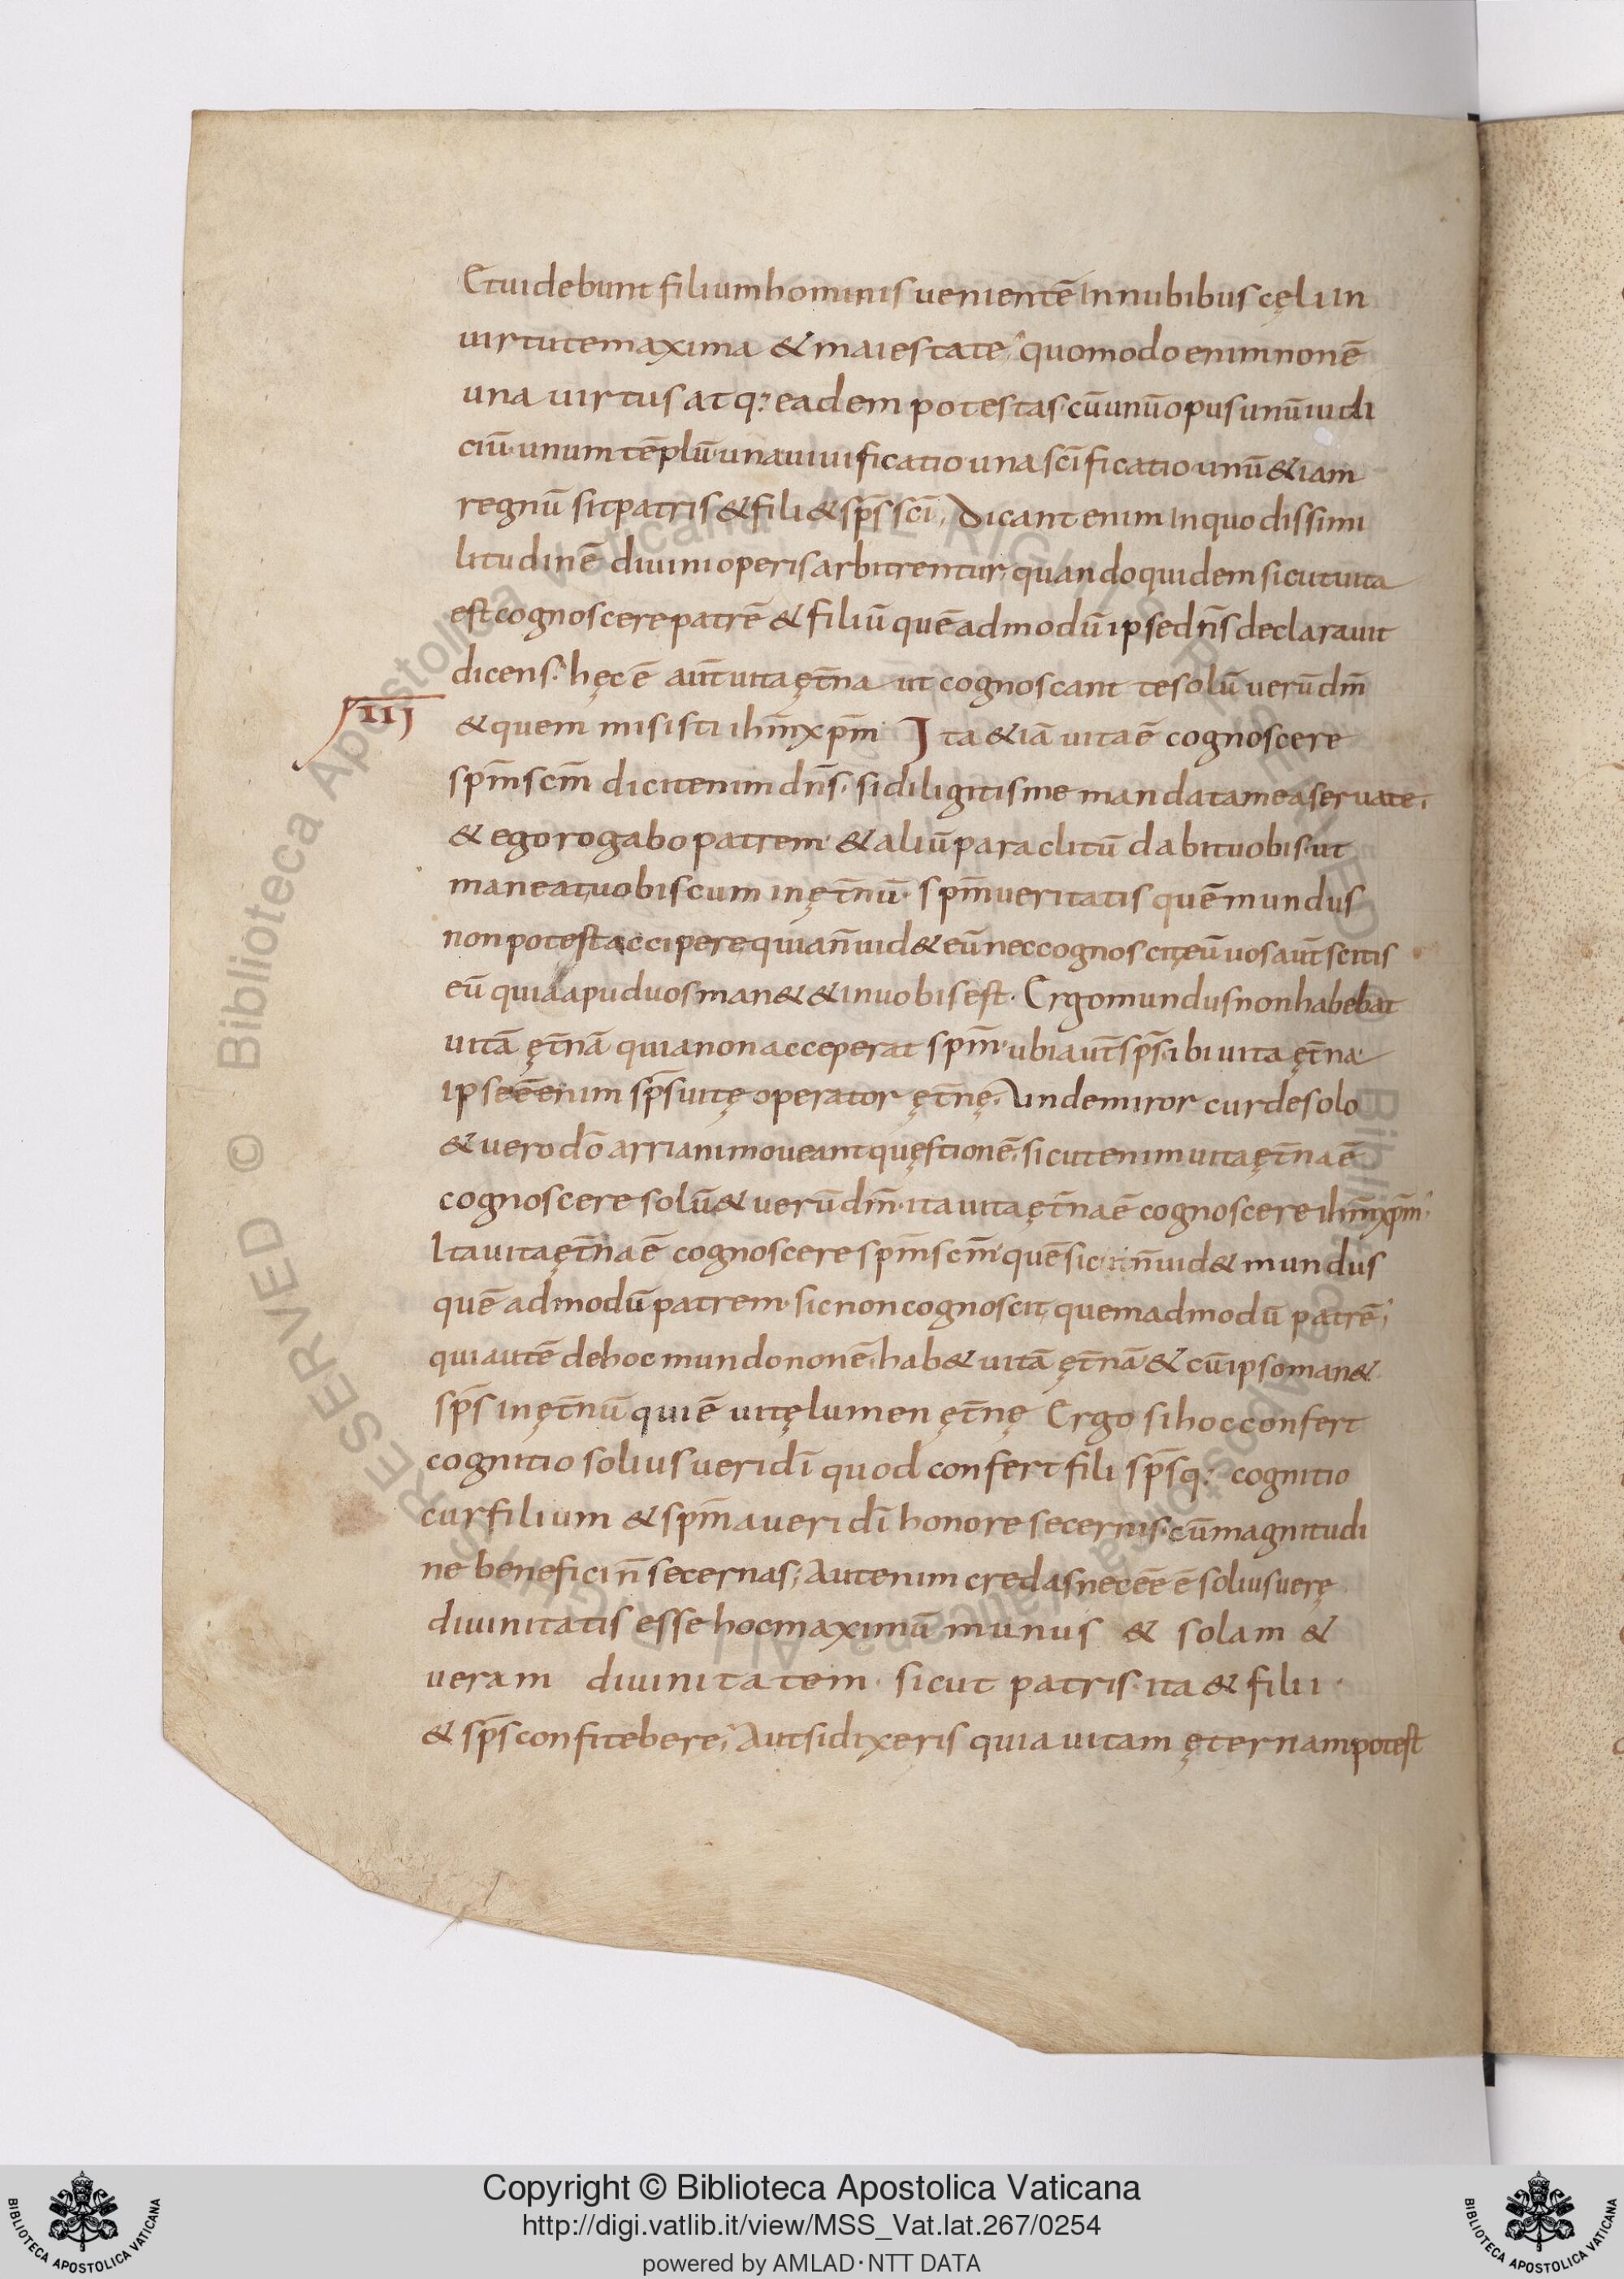 Et uidebunt filium hominis uenientē in nubibus cęli in
uirtute maxima & maiestate; quomodo enim non ē
una uirtus atq; eadem potestas cū unū opus unū iudi
ciū· unum tēplū· una uiuificatio una sc̄ificatio unū &iam
regnū sit patris & fili & sp̄s sc̄i; Dicant enim in quo dissimi
litudinē diuini operis arbitrentur; quandoquidem sicut uita
est cognoscere patrē & filiū quē ad modū ipse dn̄s declarauit
dicens; hęc ē aut̄ uita ęt̄na ut cognoscant te solū uerū dm̄
III
& quem misisti ihm̄ xpm̄ Ita &iā uita ē cognoscere
spm̄ scm̄ dicit enim dn̄s· si diligitis me mandata mea seruate;
& ego rogabo patrem· & aliū paraclitū dabit uobis· ut
maneat uobiscum in ęt̄nū· spm̄ ueritatis quē mundus
non potest accipere quia n̄ uid& eū nec cognoscit eū uos aut̄ scitis
eū quia apud uos man& & in uobis est· Ergo mundus non habebat
uitā ęt̄nā quia non acceperat spm̄· ubi aut̄ sp̄s· ibi uita ęt̄na·
ipse ē enim sp̄s uitę operator ęt̄nę; Unde miror cur de solo
& uero dō arriani moueant quęstionē; sicut enim uita ęt̄na ē
cognoscere solū & uerū dm̄· ita uita ęt̄na ē cognoscere ihm̄ xpm̄;
Ita uita ęt̄na ē cognoscere spm̄ scm̄ quē sicut n̄ uid& mundus
quē ad modū patrem· sic non cognoscit, quemadmodū patrē;
qui autē de hoc mundo non ē· hab& uitā ęt̄nā· & cū ipso man&
sp̄s in ęt̄nū qui ē uitę lumen ęt̄nę Ergo si hoc confert
cognitio solius ueri dī quod confert fili sp̄sq; cognitio
cur filium & spm̄ a ueri dī honore secernis· cū magnitudi
ne benefici n̄ secernas; Aut enim credas necēē ē solius uerę
diuinitatis esse hoc maximū munus & solam &
ueram diuinitatem· sicut patris· ita & filii·
& sp̄s confitebere; Aut si dixeris quia uitam ęternam potest
Copyright © Biblioteca Apostolica Vaticana
http://digi.vatlib.it/view/MSS_Vat.lat.267/0254
powered by AMLAD·NTT DATA